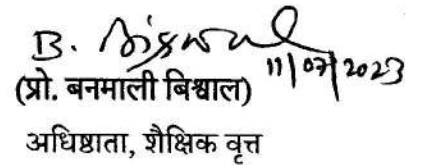 B. Biswal
11/07/2023
(प्रो. बनमाली बिश्वाल)
अधिष्ठाता, शैक्षिक वृत्त